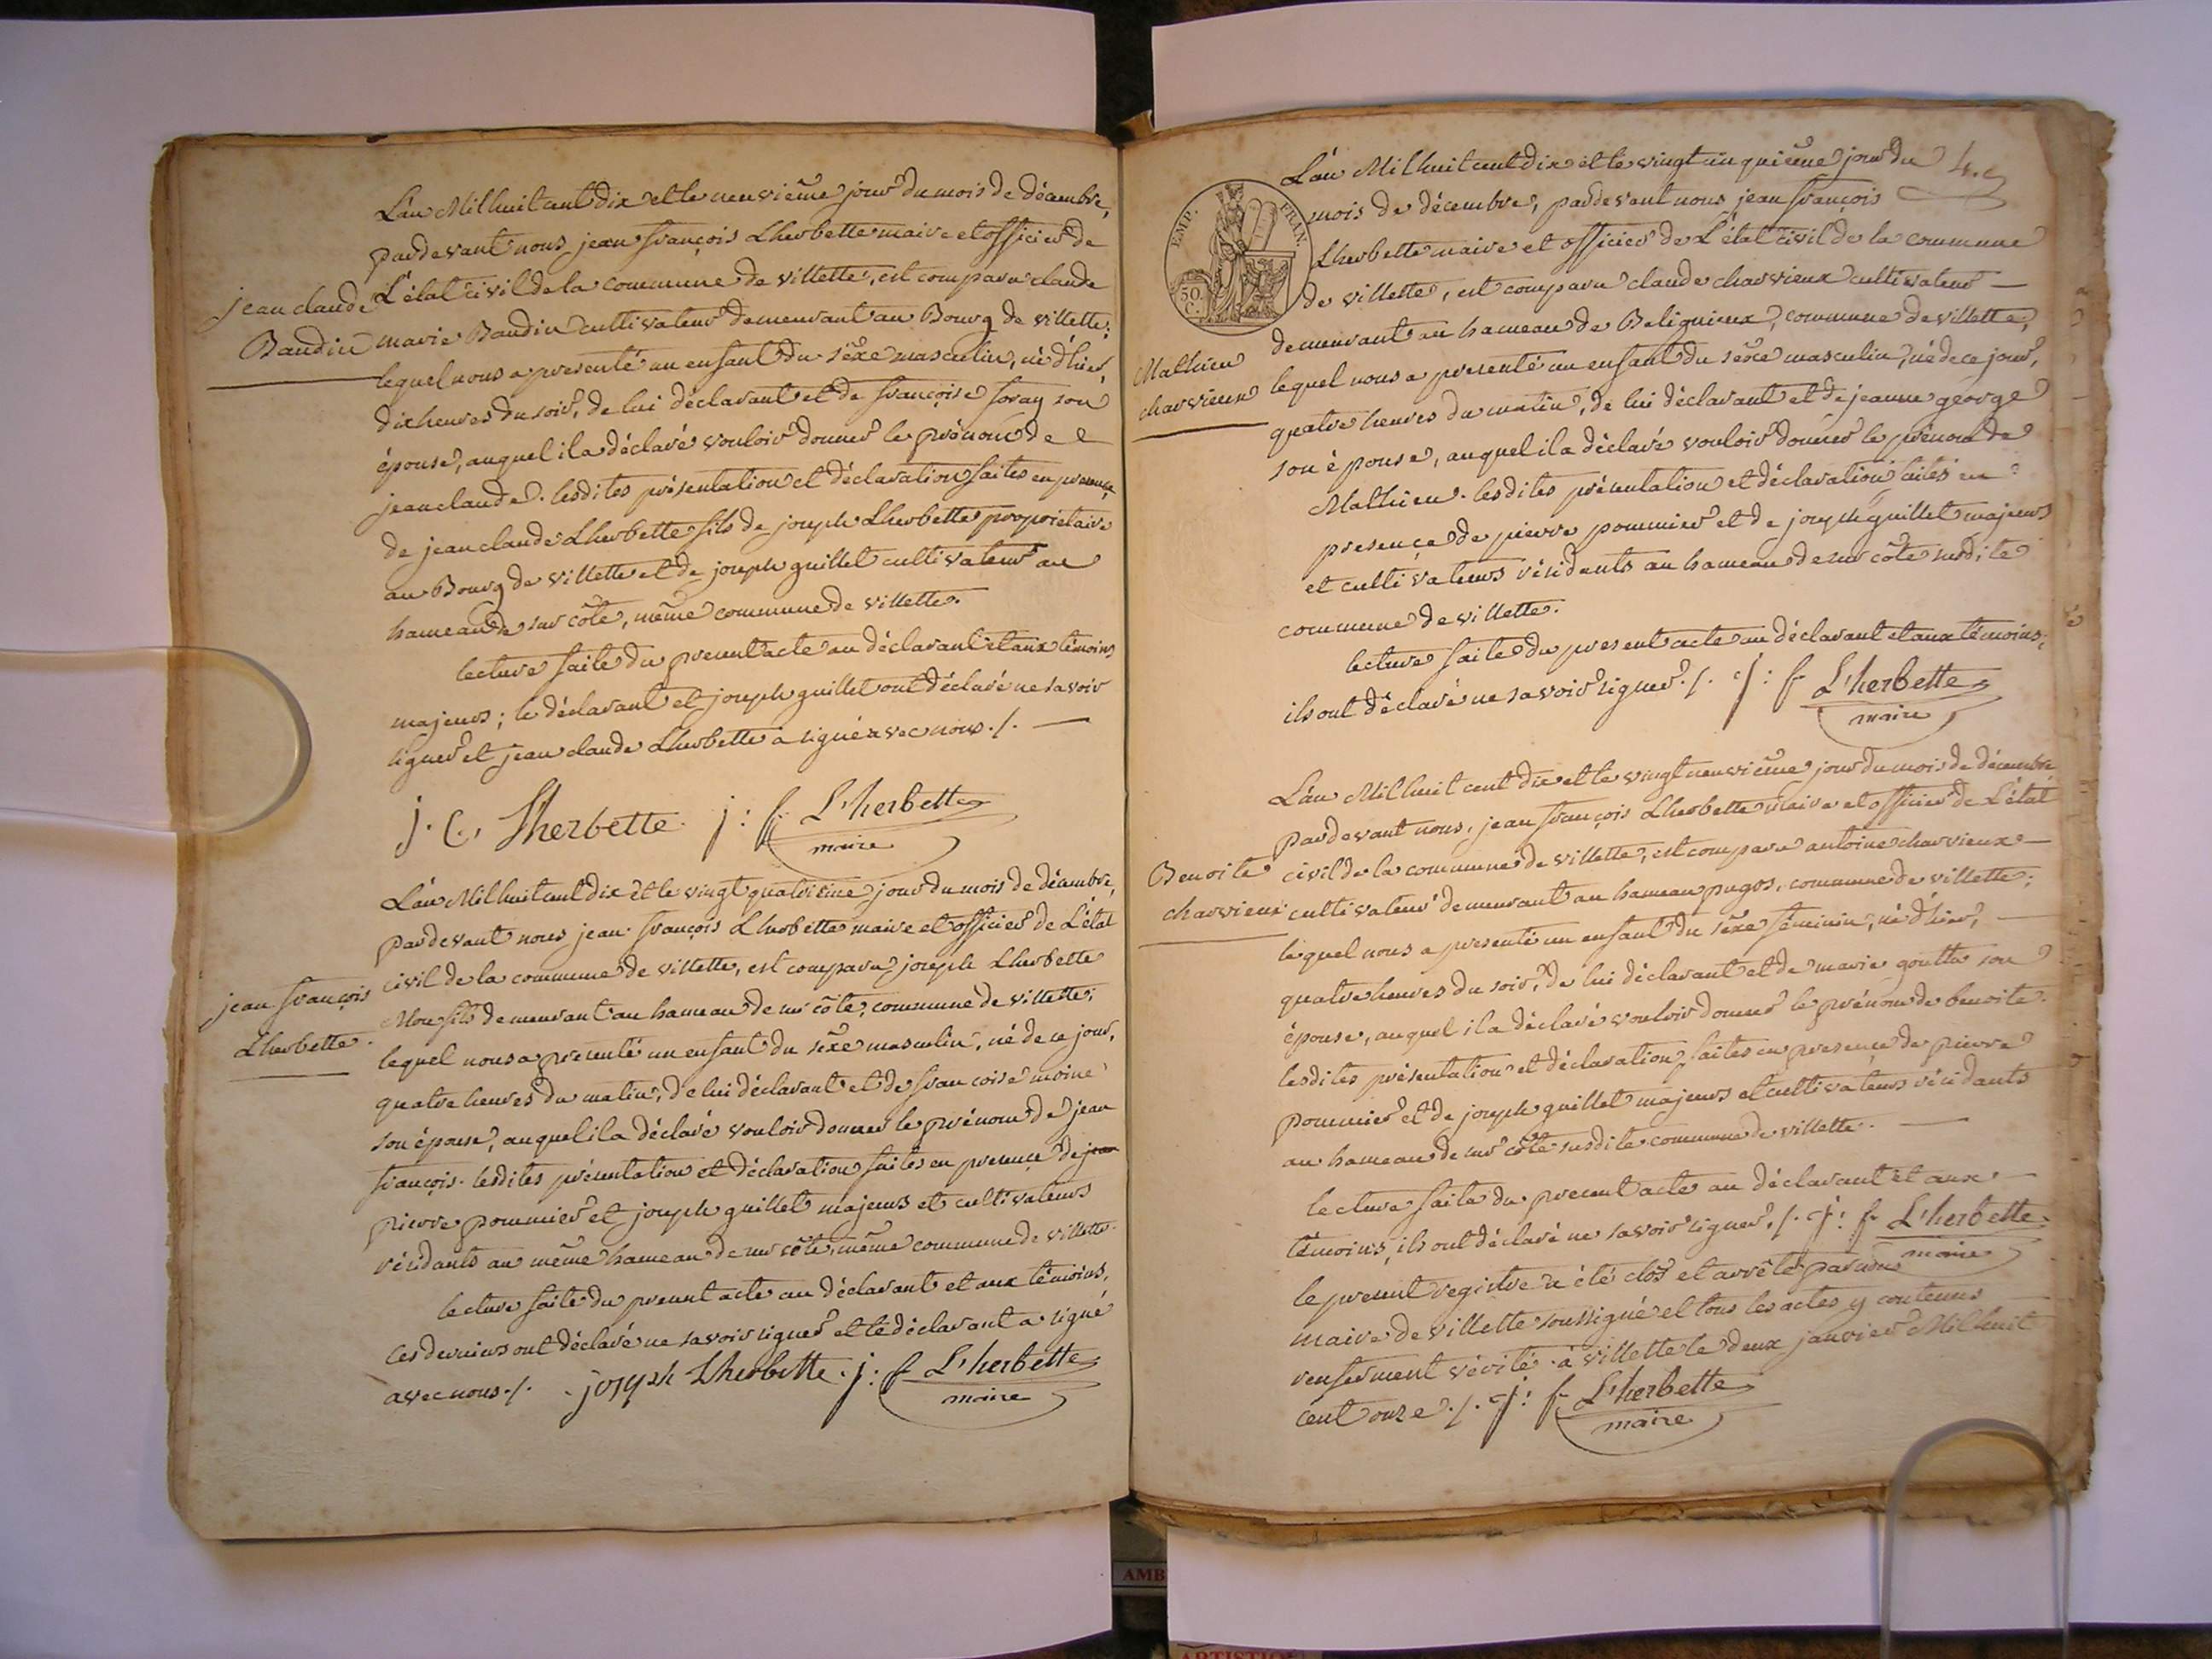 L'an Mil huit cent dix et le neuvième jour du mois de décembre,
pardevant nous jean françois Lherbette maire et officier de
L'état civil de la commune de villette, est comparu claude
jean claude
Baudin
marie Baudin cultivateur demeurant au Bourg de villette;
lequel nous a presenté un enfant du sexe masculin, né d'hier,
dix heures du soir, de lui déclarant et de françoise foray son
épouse, auquel il a déclaré vouloir donner le prénom de
jean claude. lesdites présentation et déclaration faites en presence
de jean claude Lherbette fils de joseph Lherbette propriétaire
au Bourg de villette et de joseph guillet cultivateur au
hameau de sur côte, même commune de villette.
lecture faite du present acte au déclarant et aux témoins
majeurs; le déclarant et joseph guillet ont déclaré ne savoir
signer et jean claude Lherbette a signé avec nous ./.
j. C. Lherbette. j: f. L'herbette
maire
L'an Mil huit cent dix et le vingt quatrième jour du mois de décembre,
pardevant nous jean françois Lherbette maire et officier de L'état
civil de la commune de villette, est comparu joseph Lherbette
jean françois
Lherbette.
Mon fils demeurant au hameau de sur côte, commune de villette;
lequel nous a presenté un enfant du sexe masculin, né de ce jour,
quatre heures du matin, de lui déclarant et de françoise moine
son épouse, auquel il a déclaré vouloir donner le prénom de jean
françois. lesdites présentation et déclaration faites en presence de jean
pierre pommier et joseph guillet majeurs et cultivateurs
résidants au même hameau de sur côte, même commune de villette.
lecture faite du present acte au déclarant et aux témoins,
ces derniers ont déclaré ne savoir signer et le déclarant a signé
avec nous ./. joseph Lherbette. j: f L'herbette
maire
4.e
EMP. FRAN.
50
C.
L'an Mil huit cent dix et le vingt cinquième jour du
mois de décembre, pardevant nous jean françois
Lherbette maire et officier de L'état civil de la commune
de villette, est comparu claude charvieux cultivateur
demeurant au hameau de Beliguieux, commune de villette,
Mathieu
charvieux
lequel nous a presenté un enfant du sexe masculin, né de ce jour,
quatre heures du matin, de lui déclarant et de jeanne george
son épouse, auquel il a déclaré vouloir donner le prénom de
Mathieu. lesdites présentation et déclaration faites en
presence de pierre pommier et de joseph guillet majeurs
et cultivateurs résidants au hameau de sur côte susdite
commune de villette.
lecture faite du present acte au déclarant et aux témoins;
ils ont déclaré ne savoir signer ./. j: f L'herbette
maire
L'an Mil huit cent dix et le vingt neuvième jour du mois de décembre
pardevant nous, jean françois Lherbette maire et officier de L'état
civil de la commune de villette, est comparu antoine charvieux
Benoite
charvieux
cultivateur demeurant au hameau commune de villette;
lequel nous a presenté un enfant du sexe féminin, né d'hier,
quatre heures du soir, de lui déclarant et de marie goutte son
épouse, auquel il a déclaré vouloir donner le prénom de benoite.
lesdites présentation et déclaration faites en presence de pierre
pommier et de joseph guillet majeurs et cultivateurs résidants
au hameau de sur côte susdite commune de villette.
lecture faite du present acte au déclarant et aux
témoins, ils ont déclaré ne savoir signer ./. j: f. L'herbette
maire
le present registre a été clos et arrêté par nous
maire de villette soussigné et tous les actes y contenus
renferment vérité. à villette le deux janvier Mil huit
cent onze ./. j: f L'herbette
maire
AMB
ARTISTIQUE